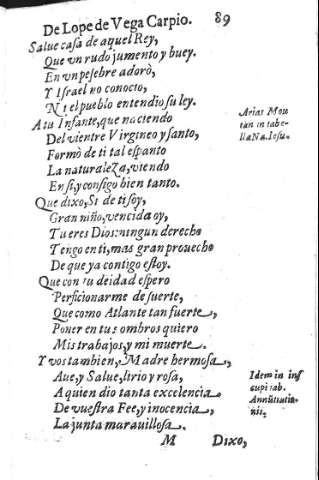 De Lope de Vega Carpio. 89
Salue casa de aquel Rey,
Que vn rudo jumento y buey.
En vn pesebre adorò,
Y Israel no conocto,
Ni el pueblo entendio su ley.
A tu Infante, que naciendo
Del vientre Virgineo y santo,
Formò de ti tal espanto
La naturaleza, viendo
En si, y consigo bien tanto.
Que dixo, Si de ti soy,
Gran niño, vencida oy,
Tu eres Dios: ningun derecho
Tengo en ti, mas gran prouecho
De que ya contigo estoy.
Que con tu deidad espero
Perficionarme de suerte,
Que como Atlante tan fuerte,
Poner en tus ombros quiero
Mis trabajos, y mi muerte.
Y vos tambien, Madre hermosa,
Aue, y Salue, lirio y rosa,
A quien dio tanta excelencia
De vuestra Fee, y inocencia,
La junta marauillosa.
M Dixo,
Arias Mon
tan in tabe-
lla Na. Iesu.
Idem in inf
cupi tab.
Annūtiatio
nis,